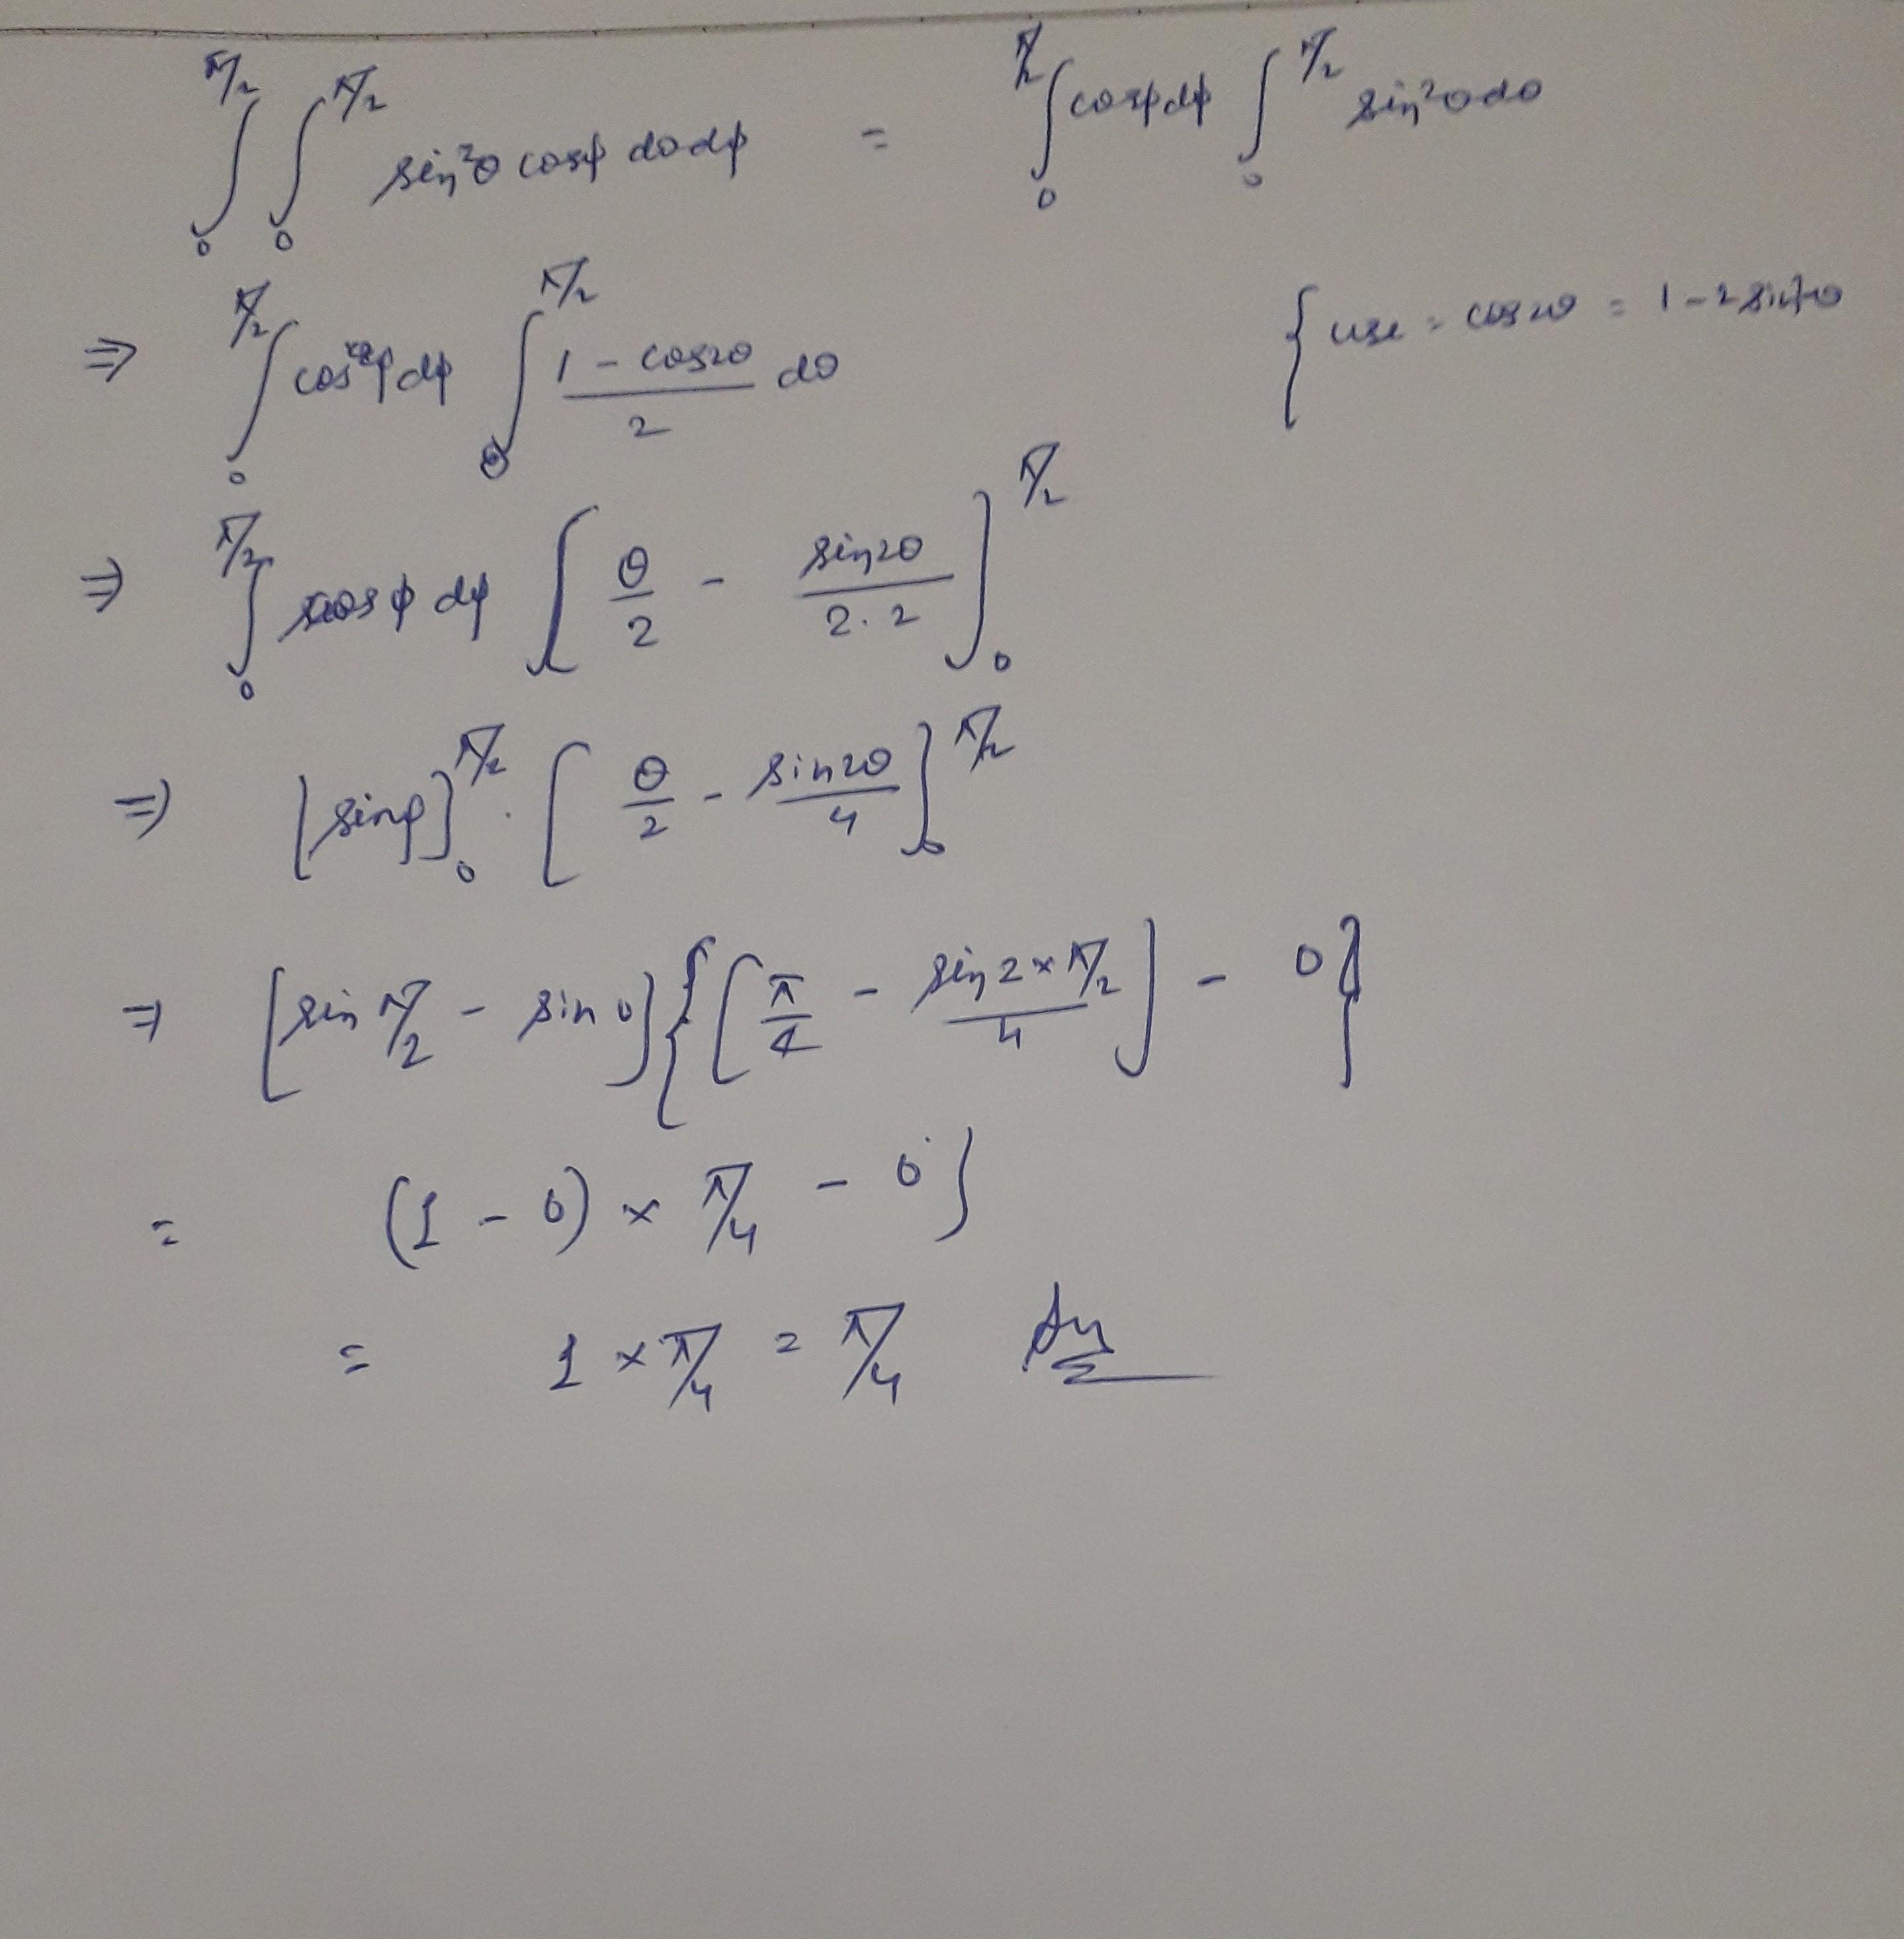 ∫₀^{π/2} ∫₀^{π/2} sin²θ cosφ dθ dφ = ∫₀^{π/2} cosφ dφ ∫₀^{π/2} sin²θ dθ
⇒ ∫₀^{π/2} cosφ dφ ∫₀^{π/2} (1 - cos2θ)/2 dθ { use = cos2θ = 1 - 2 sin²θ
⇒ ∫₀^{π/2} cosφ dφ [ θ/2 - sin2θ/2.2 ]₀^{π/2}
⇒ [sinφ]₀^{π/2} . [ θ/2 - sin2θ/4 ]₀^{π/2}
⇒ [sin π/2 - sin 0] { [ π/4 - sin 2×π/2 /4 ] - 0 }
= (1 - 0) × π/4 - 0 }
= 1 × π/4 = π/4 Ans